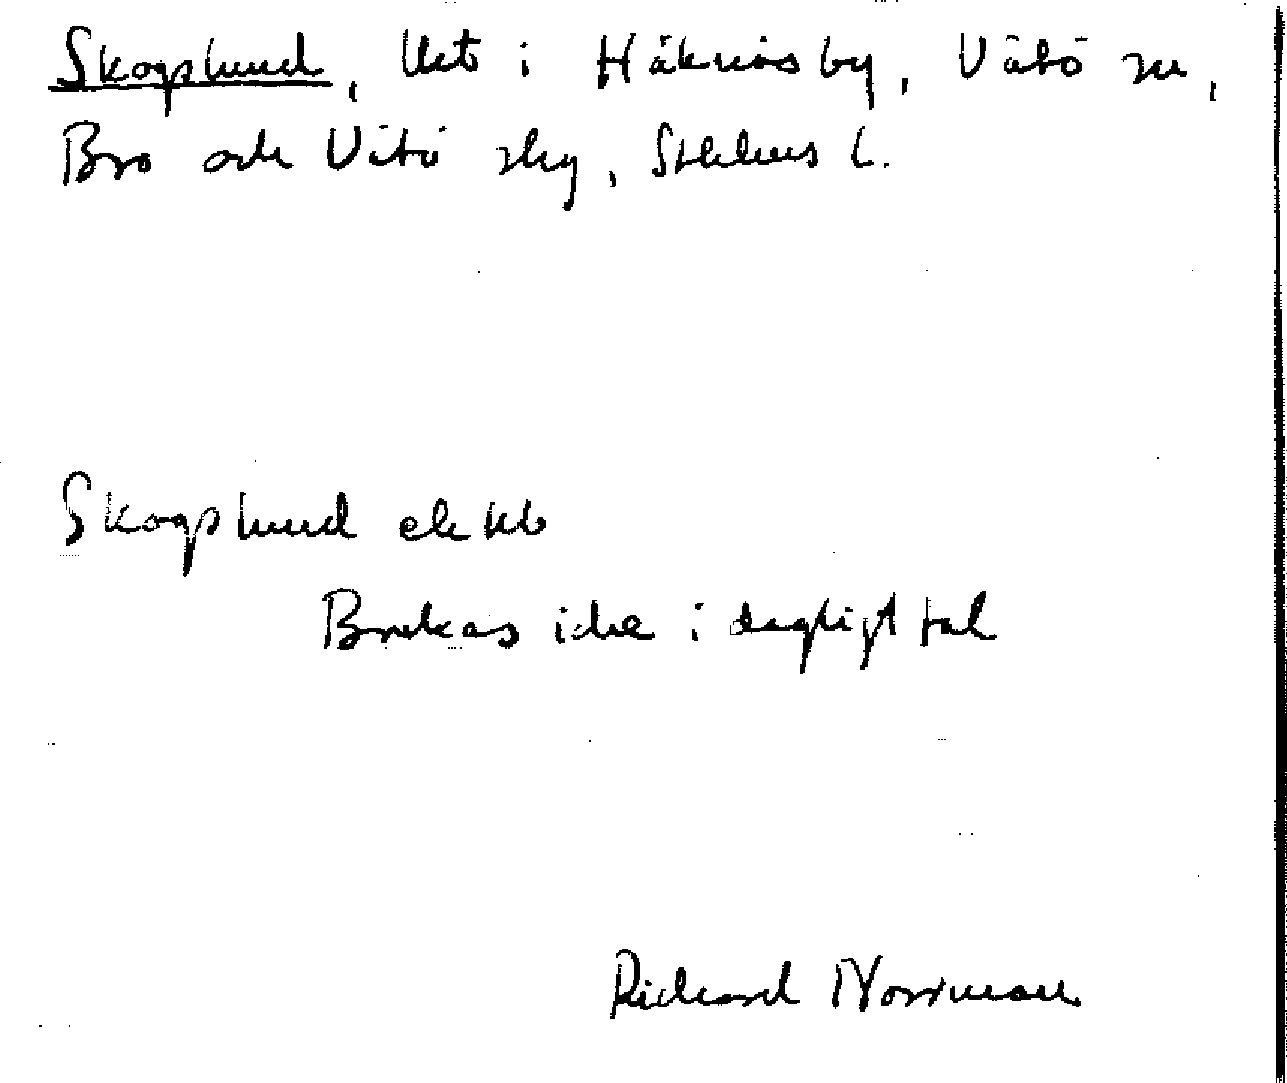 Skogslund, lht i Håknäs by, Vätö sn,
Bro och Vätö skg, Sthlms l.
Skogslund
Brukas icke i dagligt tal
Richard Norrman